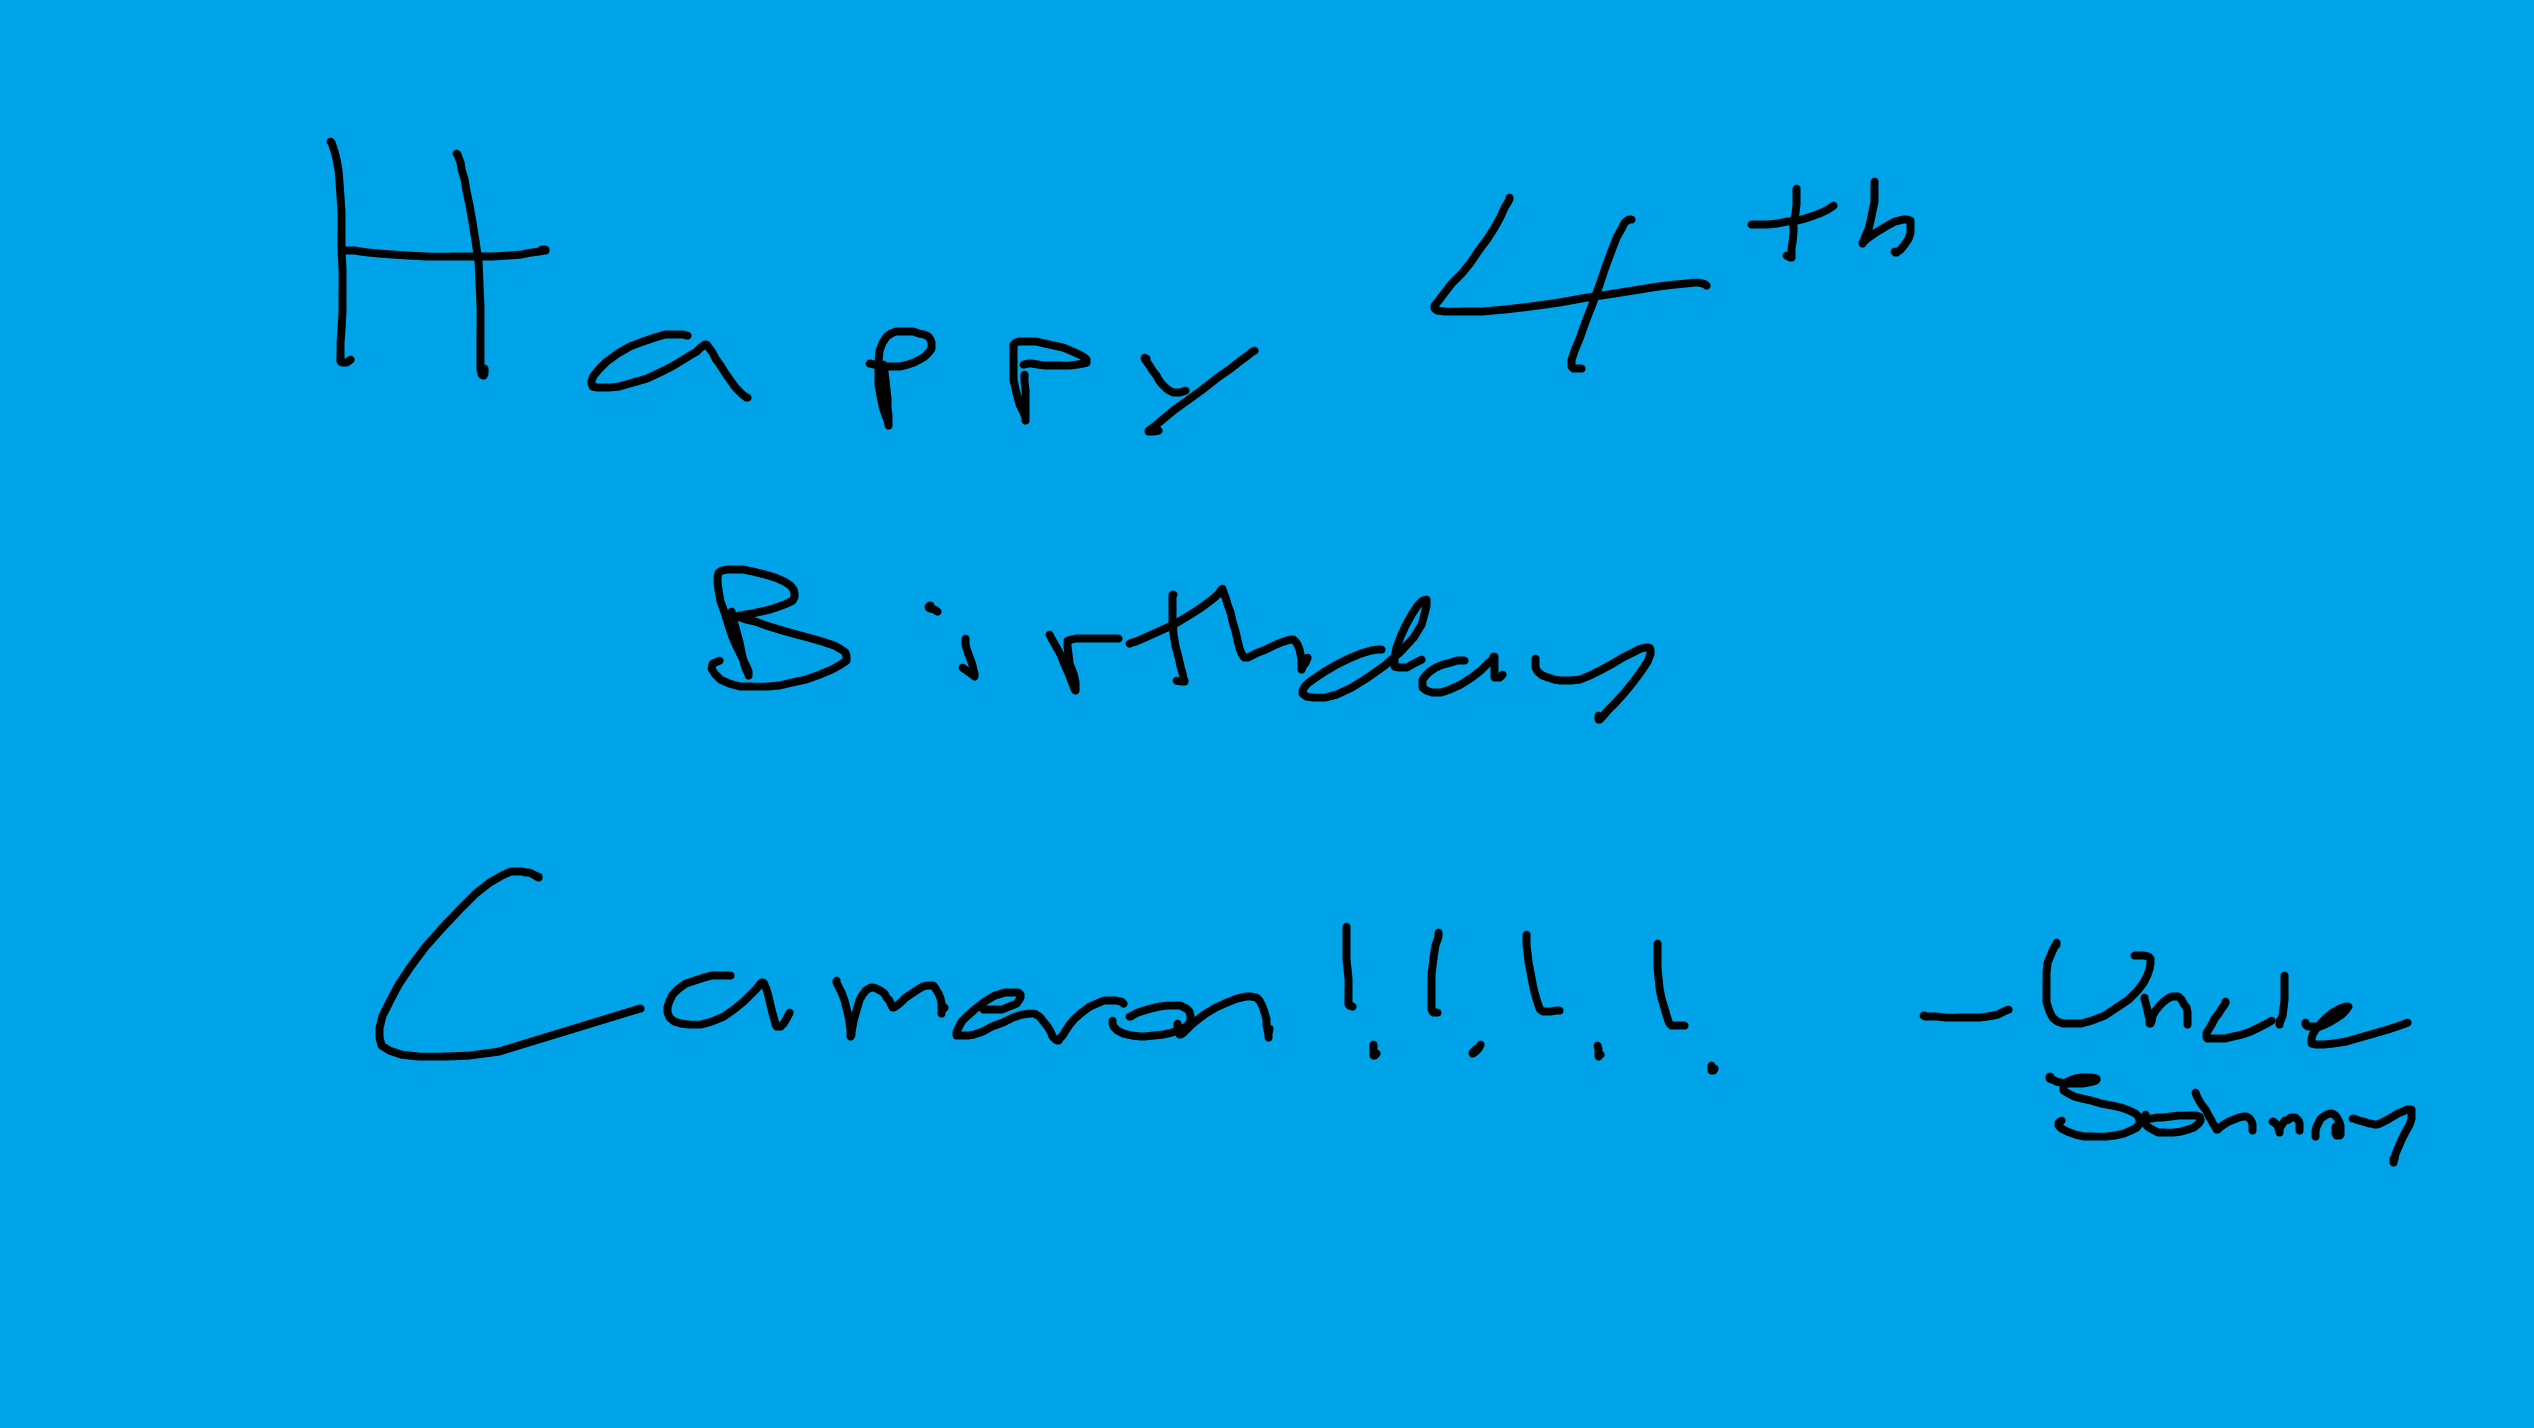 Happy 4th
Birthday
Cameron!!!! - Uncle
Johnny